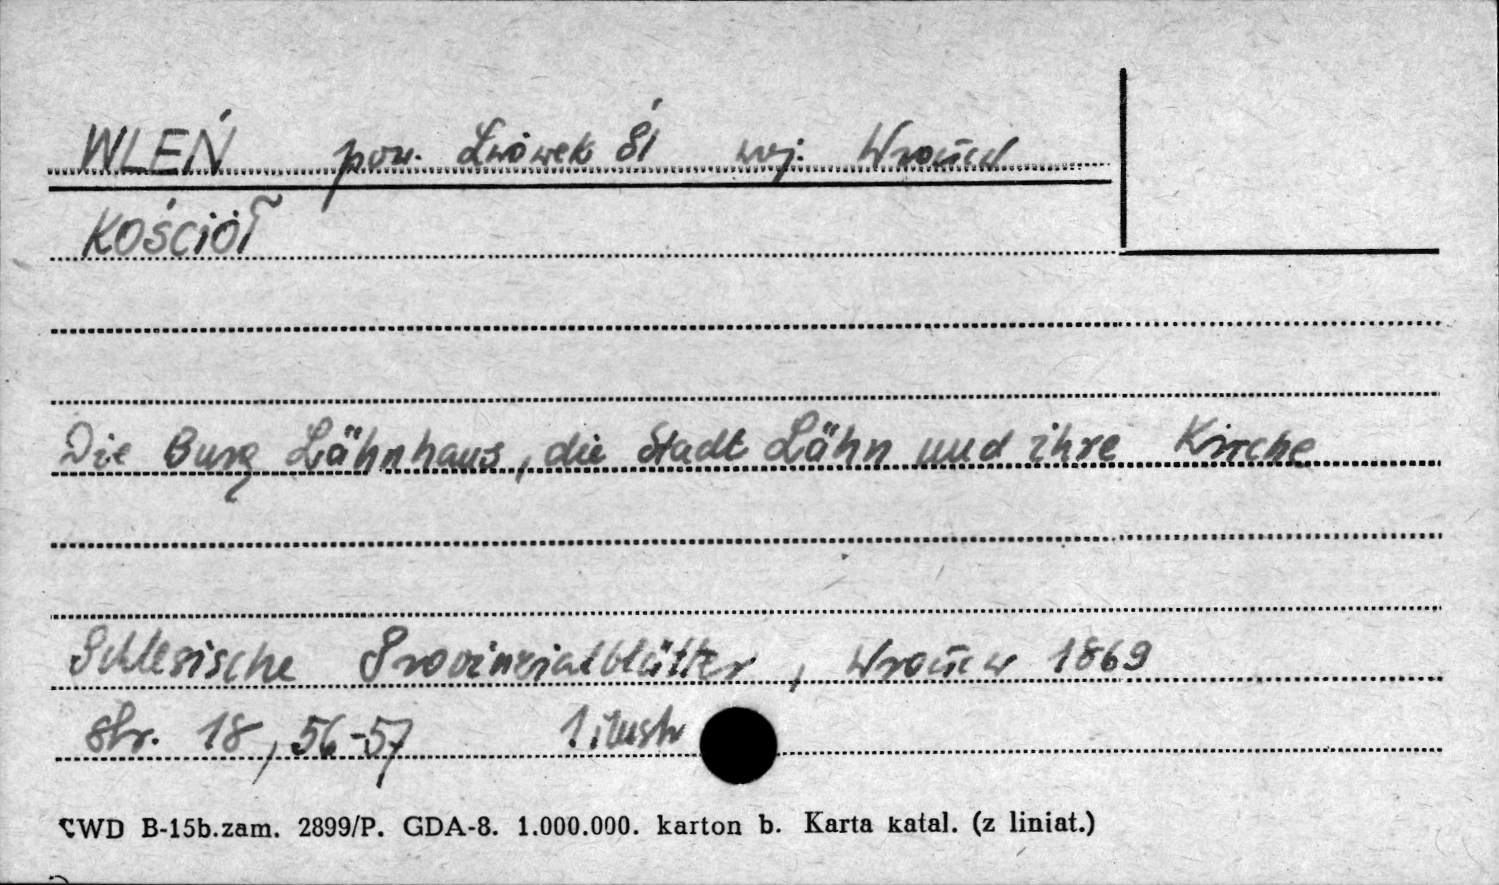 WLEŃ pow. Lwówek Śl woj. Wrocław
KOŚCIÓŁ
Die Burg Lähnhaus, die Stadt Lähn und ihre Kirche
Schlesische Provinzialblätter, Wrocław 1869
str. 18, 56-57 1 ilustr
CWD B-15b.zam. 2899/P. GDA-8. 1.000.000. karton b. Karta katal. (z liniat.)